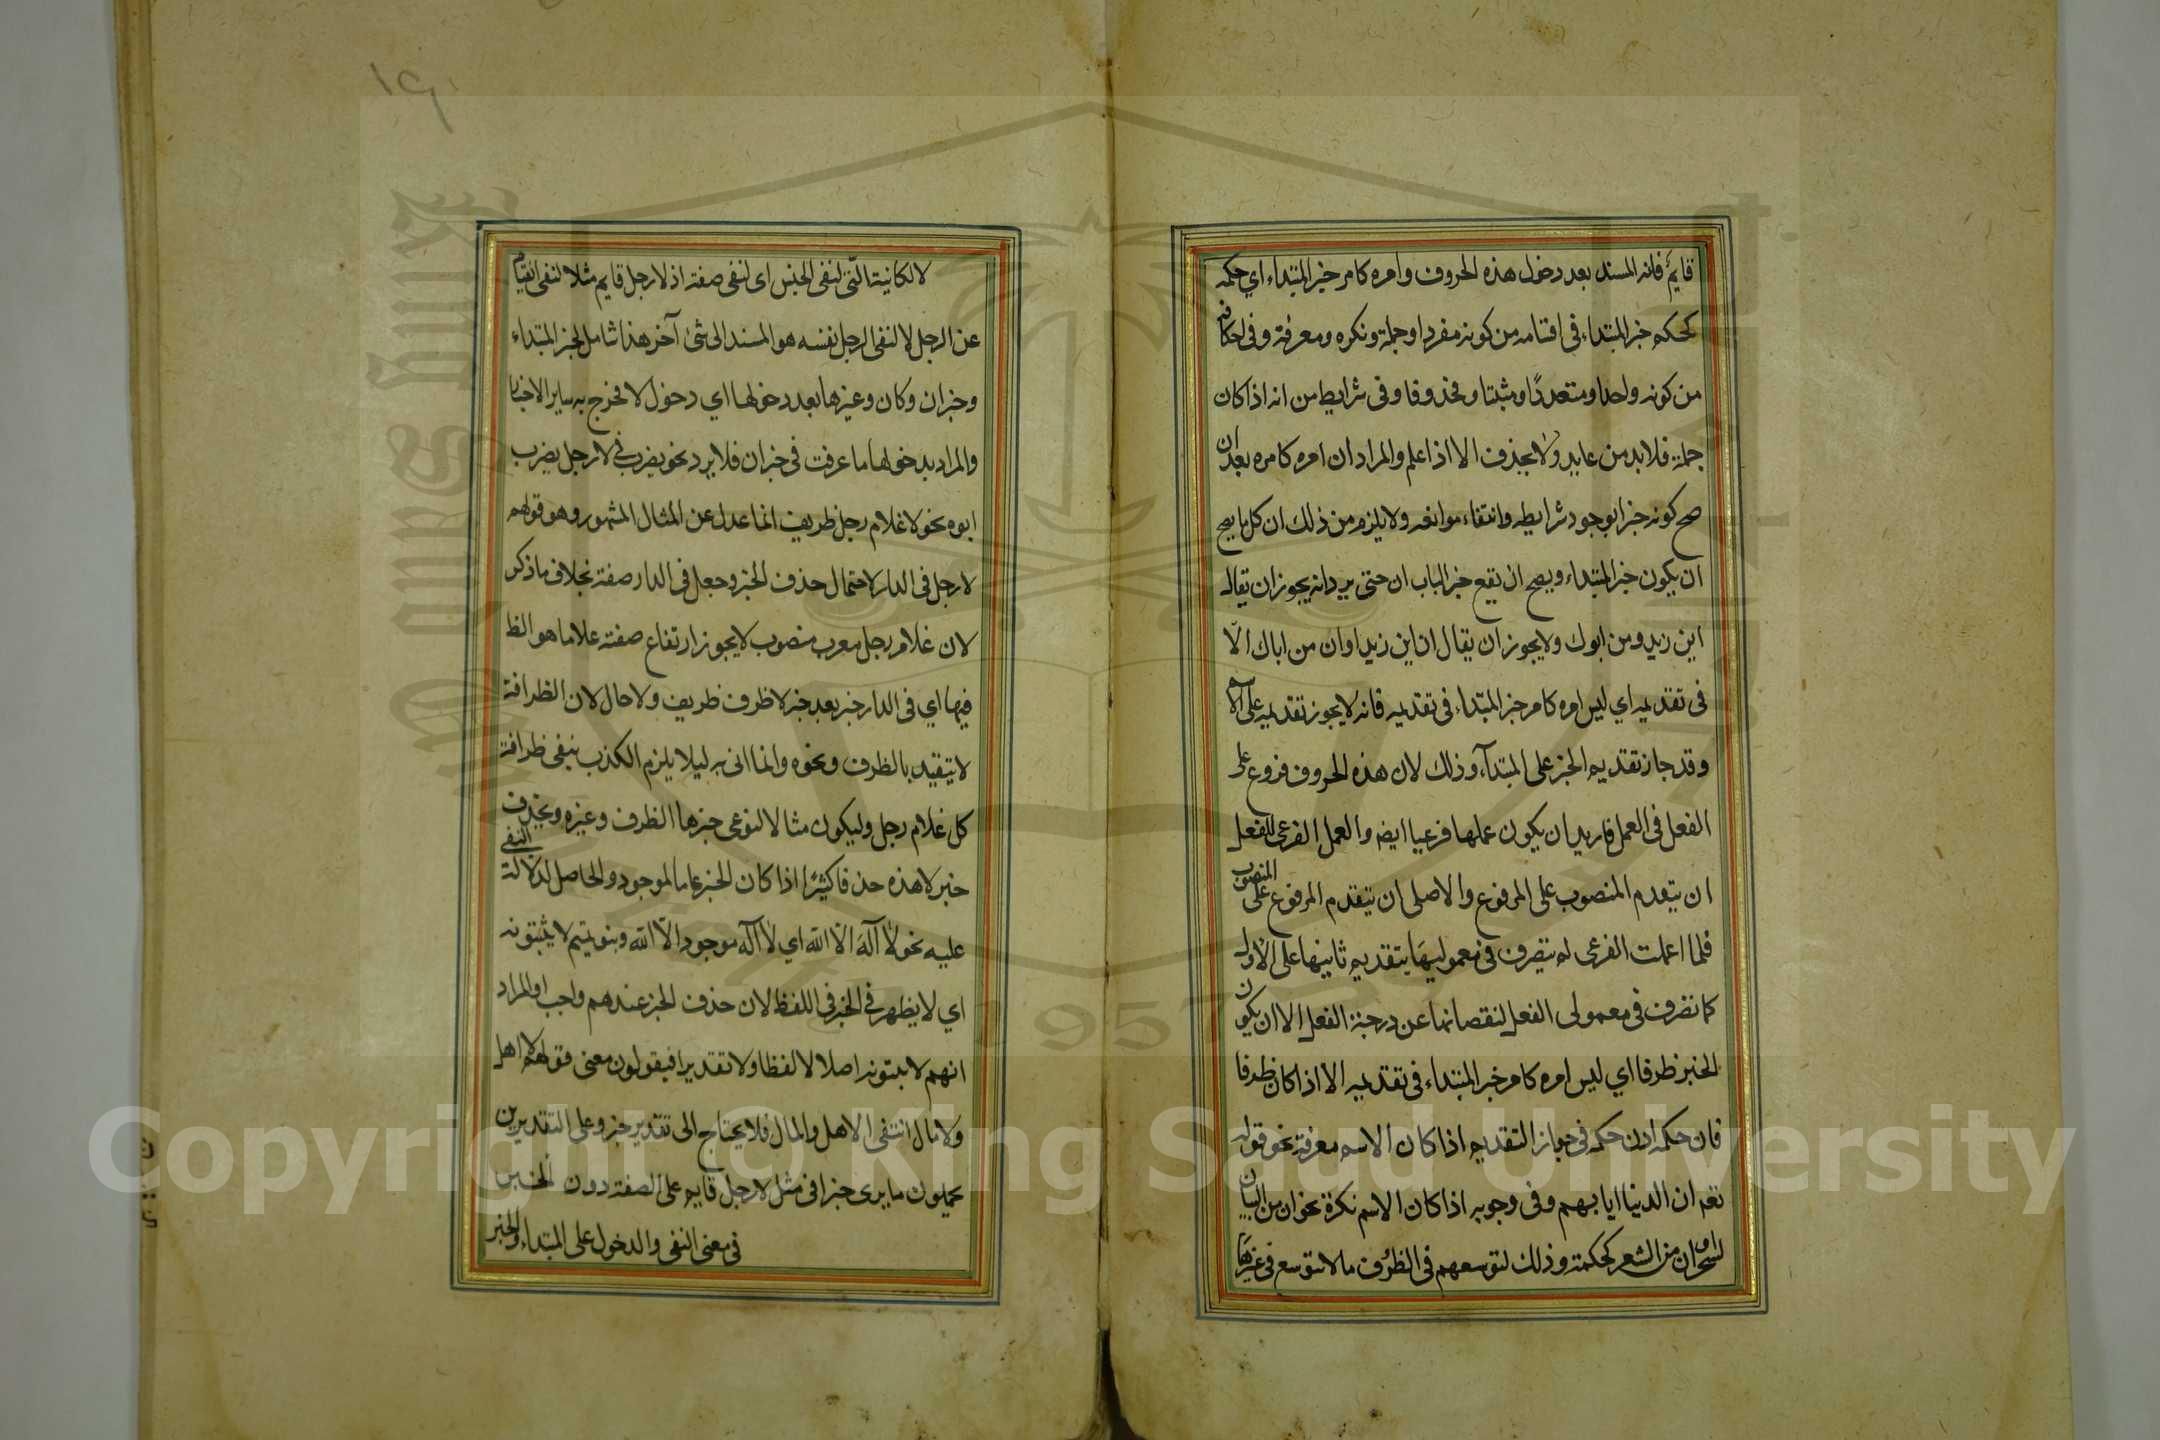 قايمٌ فانه المسند بعد دخول هذه الحروف وامره كامر خبر المبتداء اي حكمه
كحكم خبر المبتداء فى اقسامه من كونه مفردا وجملة ونكره ومعرفة وفى احكامه
من كونه واحدا ومتعددًا ومثبتا ومحذوفا وفى شرايطه من انه اذا كان
جملة فلابد من عايد ولا يحذف الا اذا علم والمراد ان امره كامره بعد ان
صح كونه خبرا بوجود شرايطه وانتفاء موانعه ولا يلزم من ذلك ان كل ما يصح
ان يكون خبر المبتداء ويصح ان يقع خبر الباب ان حتى يرد انه يجوز ان يقال
اين زيد ومن ابوك ولا يجوز ان يقال ان اين زيدا وان من اباك الّا
فى تقديمه اي ليس امره كامر خبر المبتداء فى تقديمه فانه لا يجوز تقديمه على الا
وقد جاز تقديم الخبر على المبتدآء وذلك لان هذه الحروف فروع على
الفعل فى العمل فاريد ان يكون عملها فرعيا ايضا والعمل الفرعى للفعل
ان يتقدم المنصوب على المرفوع والاصلى ان يتقدم المرفوع على المنصوب
فلما اعملت الفرعى لم يتصرف فى معموليها بتقديم ثانيها على الاول
كما تصرف فى معمولى الفعل لنقصانها عن درجة الفعل الا ان يكون
الخبر ظرفا اي ليس امره كامر خبر المبتداء فى تقديمه الا اذا كان ظرفا
فان حكمه اذن حكمه فى جواز التقديم اذا كان الاسم معرفة نحو قوله
نعم ان الدنيا ايابهم وفى وجوبه اذا كان الاسم نكرة نحو ان من البيان
لسحرا وان من الشعر لحكمة وذلك لتوسعهم فى الظروف ما لا يتوسع فى غيرها
١٩
لا الكاينة الّتى لنفى الجنس اى لنفى صفته اذ لا رجل قايم مثلا لنفى القيام
عن الرجل لا لنفى الرجل نفسه هو المسند الى شئ آخر هذا شامل لخبر المبتداء
وخبر ان وكان وغيرها بعد دخولها اي دخول لا فخرج به ساير الاخبار
والمراد بدخولها ما عرفت فى خبر ان فلا يرد نحو يضرب فى لا رجل يضرب
ابوه نحو لا غلام رجل ظريف انما عدل عن المثال المشهور وهو قولهم
لا رجل فى الدار لاحتمال حذف الخبر وجعل فى الدار صفة بخلاف ما ذكر
لان غلام رجل معرب منصوب لا يجوز ارتفاع صفته على ما هو الظ
فيها اي فى الدار خبر بعد خبر لا ظرف ظريف ولا حال لان الظرافة
لا يتقيد بالظرف ونحوه وانما اتى به ليلا يلزم الكذب بنفى ظرافة
كل غلام رجل وليكون مثالا لنوعى خبرها الظرف وغيره ويحذف
خبر لا هذه حذفا كثيرًا اذا كان الخبر عاما كالموجود والحاصل لدلالة النفى
عليه نحو لا آله الا الله اي لا آله موجود الا الله وبنو تميم لا يثبتونه
اي لا يظهر فى الخبر فى اللفظ لان حذف الخبر عندهم واجب او المراد
انهم لا يثبتونه اصلا لا لفظا ولا تقديرا فيقولون معنى قولهم لا اهل
ولا مال انتفى الاهل والمال فلا يحتاج الى تقدير خبر وعلى التقديرين
يحملون ما يرى خبرا فى مثل لا رجل قايم على الصفة دون الخبر
فى معنى النفى والدخول على المبتداء والخبر
Copyright © King Saud University